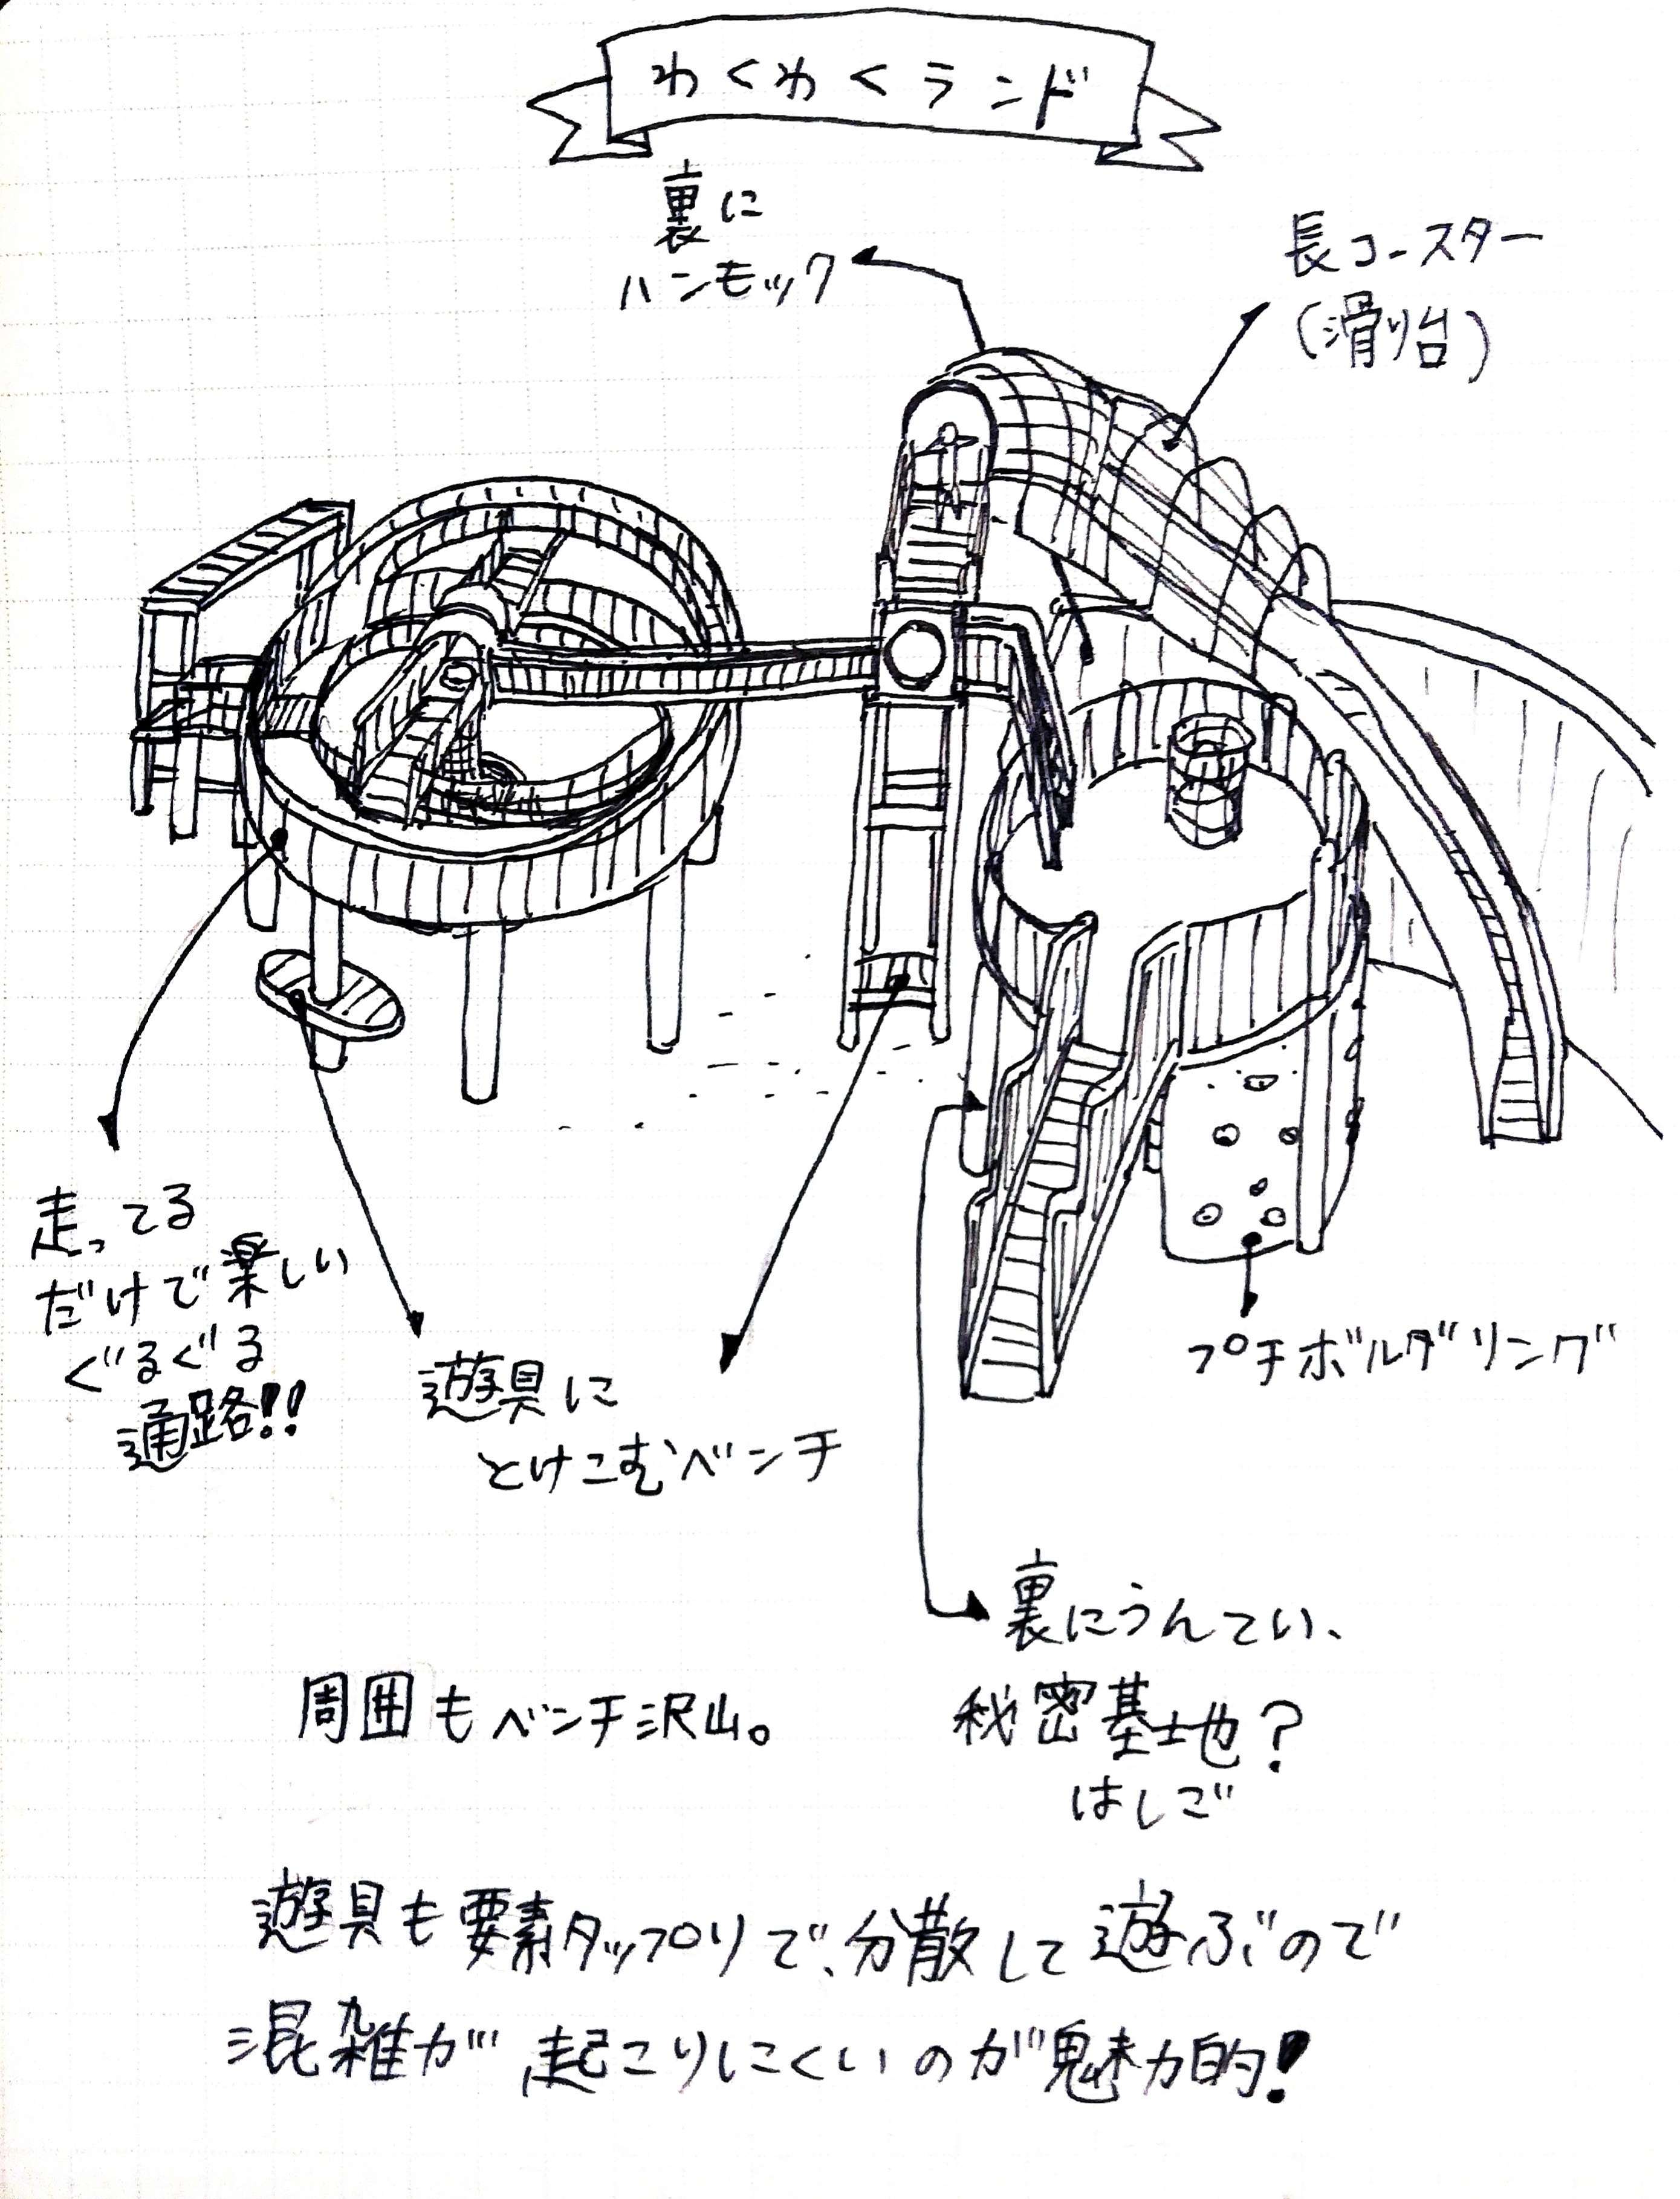 わくわくランド
裏に
ハンモック
長コースター
(滑り台)
走ってる
だけで楽しい
ぐるぐる
通路!!
遊具に
とけこむベンチ
プチボルダリング
裏にうんてい、
秘密基地?
はしご
周囲もベンチ沢山。
遊具も要素タップリで、分散して遊ぶので
混雑が起こりにくいのが魅力的!